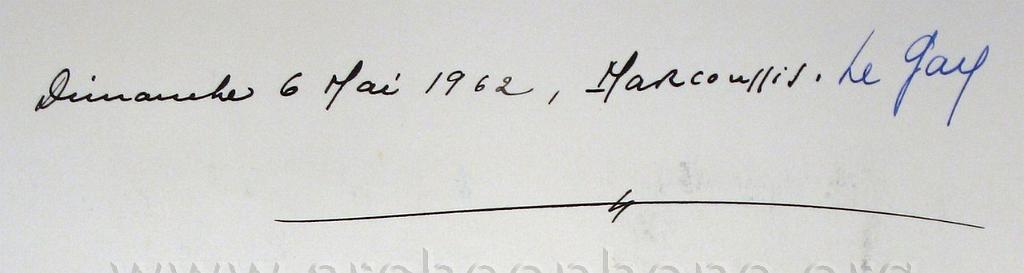 Dimanche 6 Mai 1962, Marcoussis. Le Gay
www.archeophone.org